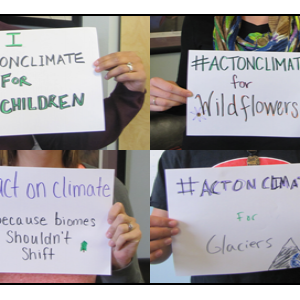 I
ONCLIMATE
FOR
CHILDREN
#ACTONCLIMAT
for
Wildflowers
act on climate
because biomes
Shouldn't
Shift
#ACTONCLIMAT
For
Glaciers